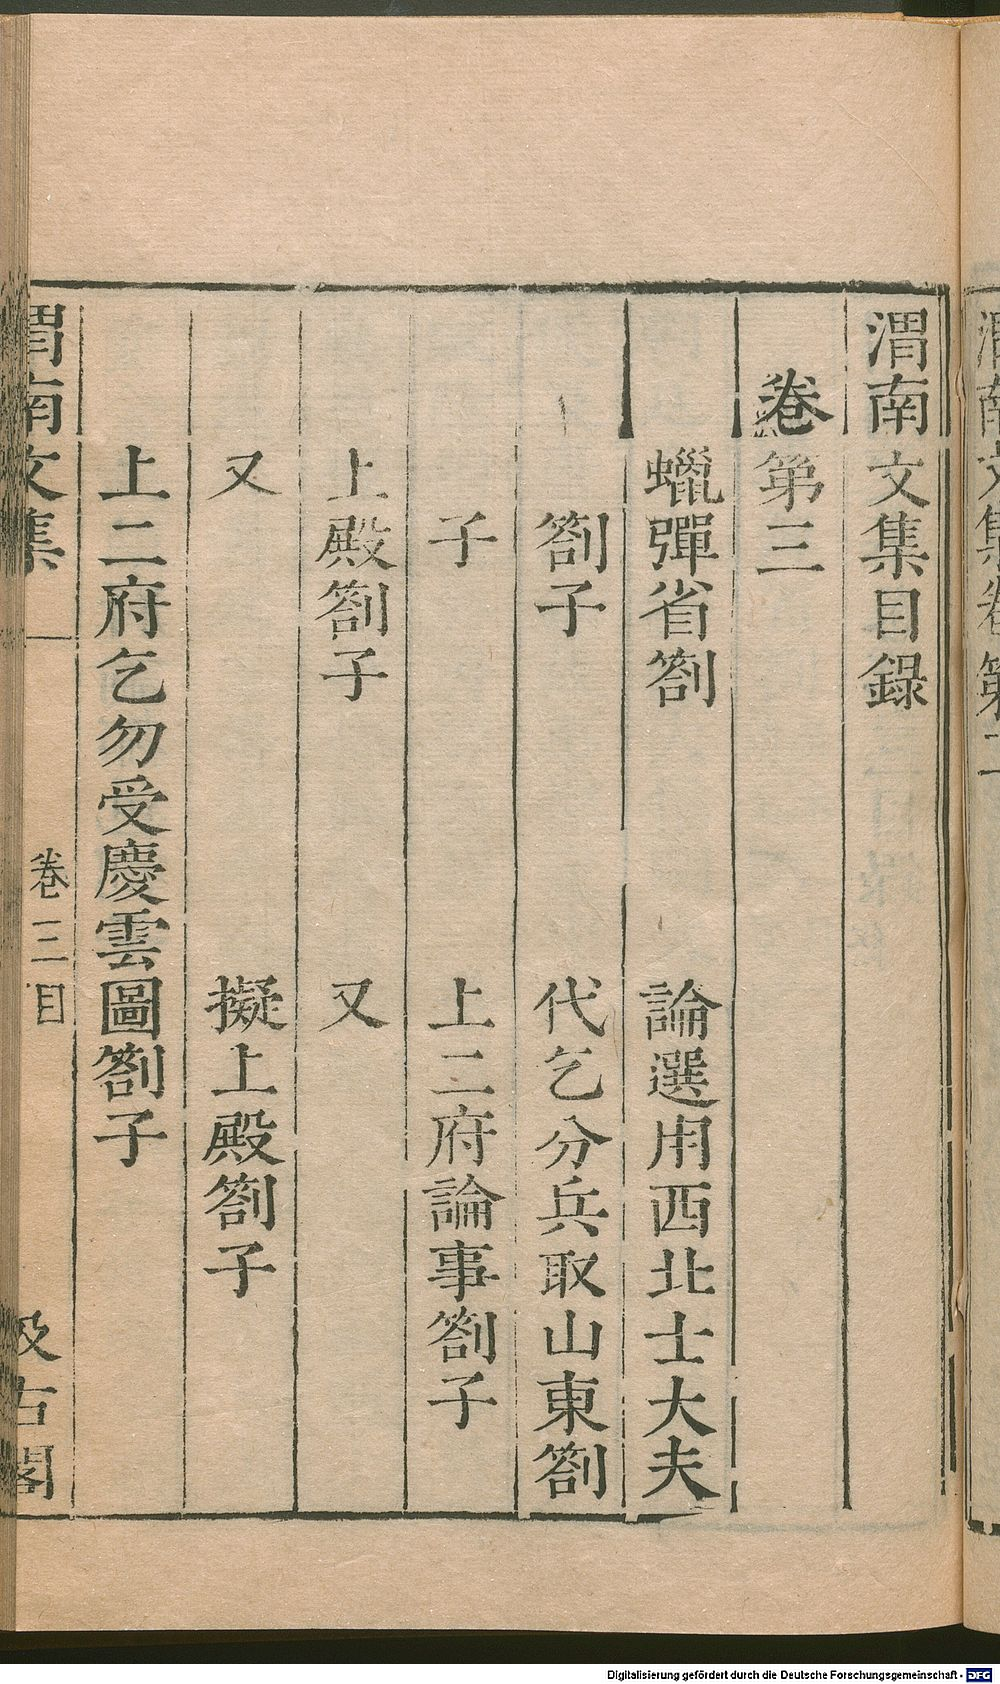 渭南文集目錄
卷第三
蠟彈省劄 論選用西北士大夫
劄子 代乞分兵取山東劄
子 上二府論事劄子
上殿劄子 又
又 擬上殿劄子
上二府乞勿受慶雲圖劄子
渭南文集 卷三目 汲古閣
渭南文集卷第二
Digitalisierung gefördert durch die Deutsche Forschungsgemeinschaft - DFG